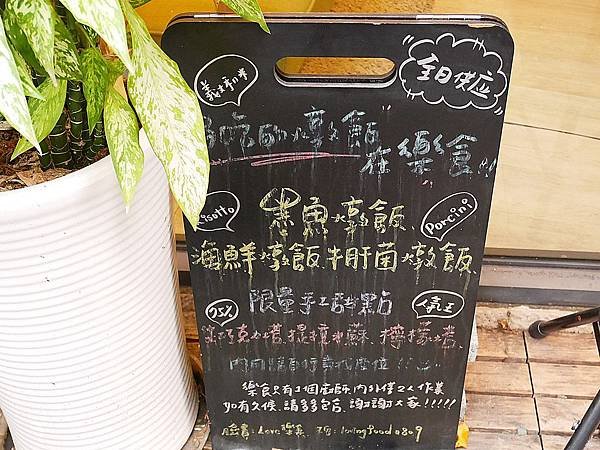 義大利米
全日供应
好吃的燉飯
在樂食
Risotto
Porcini
魚燉飯、
海鮮燉飯、牛肝菌燉飯、
限量手工甜點
75%
人氣王
巧克力塔、提拉米蘇、檸檬塔、
樂食只有1個廚師,內外僅2人作業
如有久候、請多多包含、謝謝大家!!!!!
臉書:Love樂食、 lovingfood0809